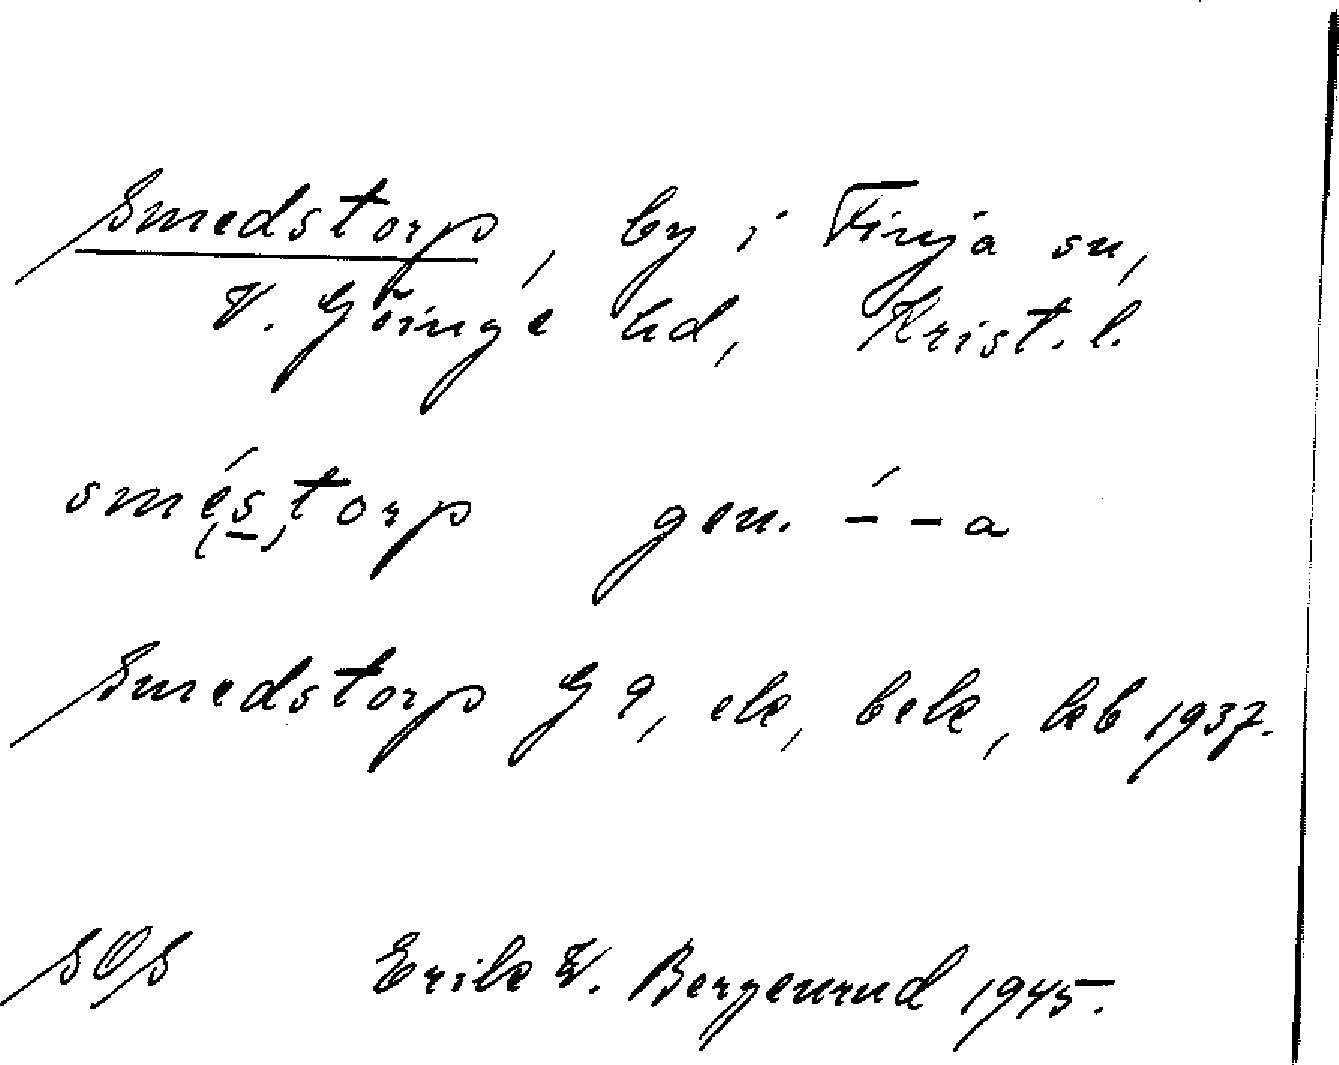 Smedstorp, by i Finja sn,
V. Göinge hd, Krist. l.
sméstorp gen. -́ - a
Smedstorp G 9, ek, bek, kb 1937.
SOS Erik W. Bergenrud 1945.